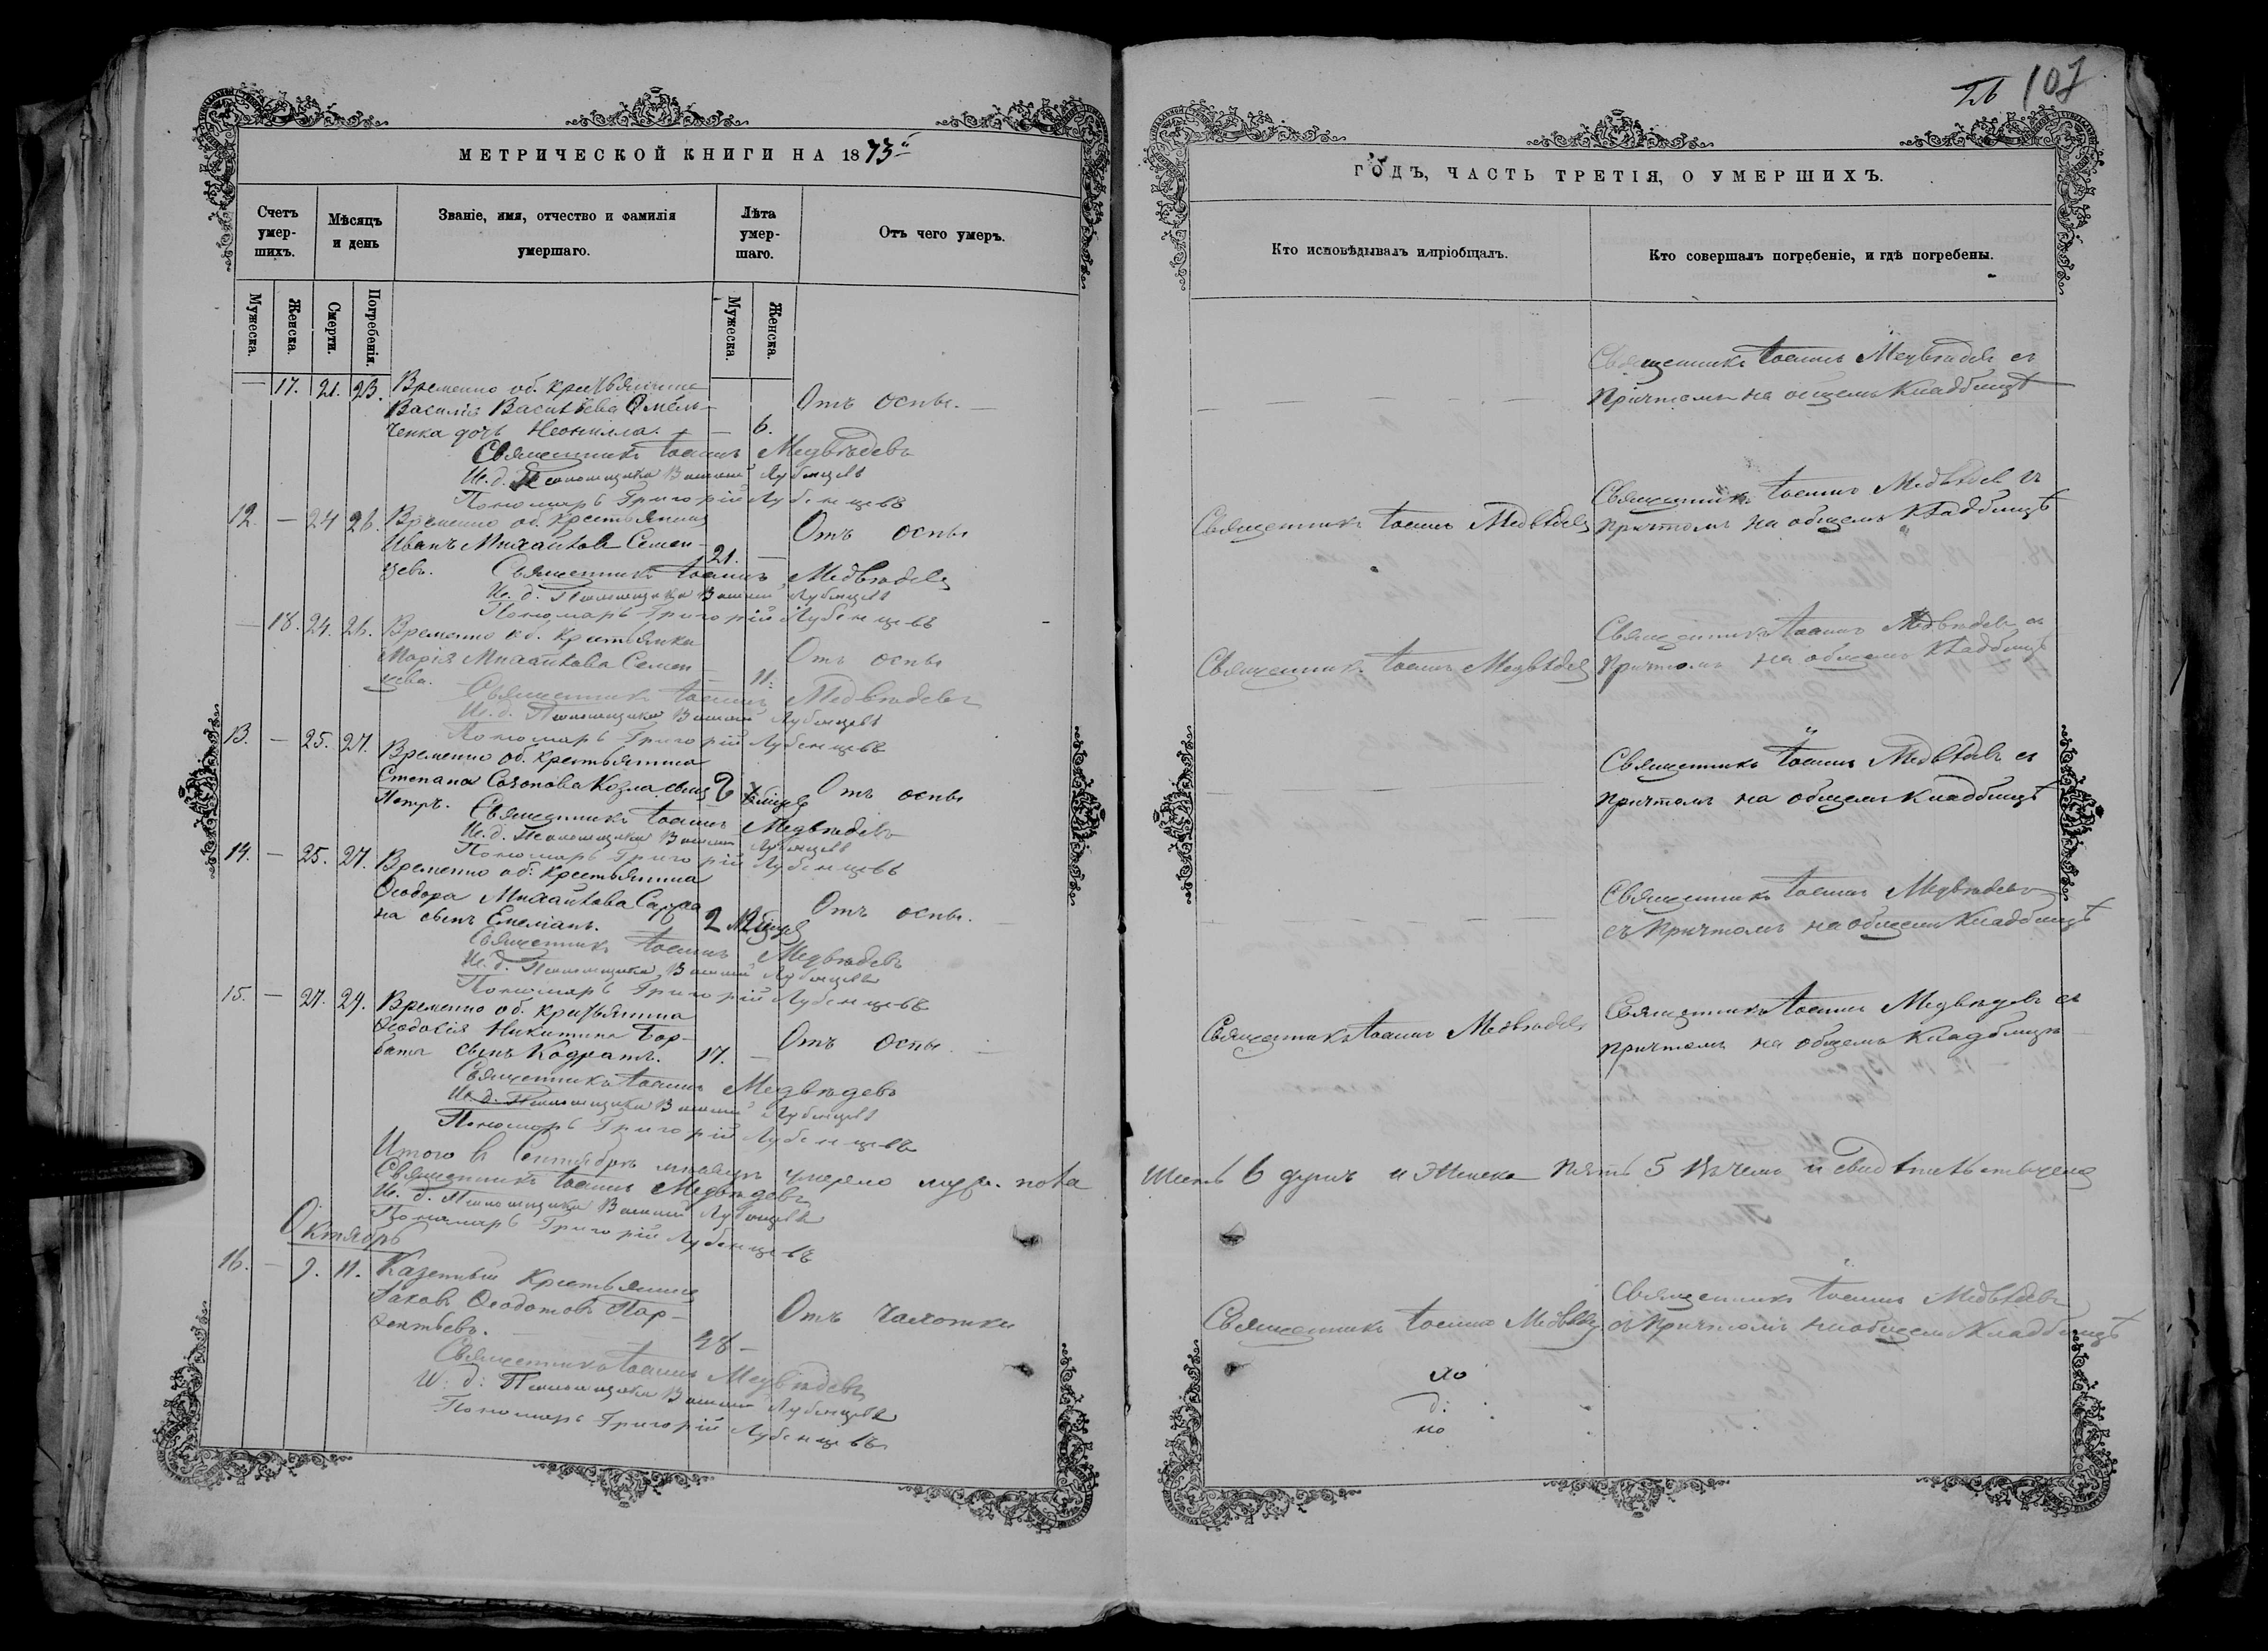 107
МЕТРИЧЕСКОЙ КНИГИ НА 1873й
ГОДЪ, ЧАСТЬ ТРЕТІЯ, О УМЕРШИХЪ.
Счетъ умер-шихъ.
Мѣсяцъ и день
Званіе, имя, отчество и фамилія умершаго.
Лѣта умер-шаго.
Отъ чего умеръ.
Кто исповѣдывалъ и пріобщалъ.
Кто совершалъ погребеніе, и гдѣ погребены.
Мужеска.
Женска.
Смерти.
Погребенія.
Мужеска.
Женска.
— 17. 21. 23. Временно об. крестьянина
Василія Васильева Омель-
ченка дочь Неонилла. — 6.
Отъ оспы.
Священникъ Іоаннъ Медвѣдевъ съ
Причтомъ на общемъ Кладбищѣ
Священникъ Іоаннъ Медвѣдевъ
И. д. Псаломщика Лубенцевъ
Пономарь Григорій Лубенцевъ
12. — 24 26. Временно об. крестьянинъ
Иванъ Михайловъ Семен-
цевъ. 21. —
Отъ оспы
Священникъ Іоаннъ Медвѣдевъ
Священникъ Іоаннъ Медвѣдевъ съ
Причтомъ на общемъ Кладбищѣ
Священникъ Іоаннъ Медвѣдевъ
И. д. Псаломщика Лубенцевъ
Пономарь Григорій Лубенцевъ
— 18. 24. 26. Временно об. крестьянка
Марія Михайлова Семен-
цева. — 11.
Отъ оспы
Священникъ Іоаннъ Медвѣдевъ
Священникъ Іоаннъ Медвѣдевъ съ
Причтомъ на общемъ Кладбищѣ
Священникъ Іоаннъ Медвѣдевъ
И. д. Псаломщика Лубенцевъ
Пономарь Григорій Лубенцевъ
13. — 25. 27. Временно об. крестьянина
Степана сынъ
Петръ.
Отъ оспы
Священникъ Іоаннъ Медвѣдевъ съ
Причтомъ на общемъ Кладбищѣ
Священникъ Іоаннъ Медвѣдевъ
И. д. Псаломщика Лубенцевъ
Пономарь Григорій Лубенцевъ
14. — 25. 27. Временно об. крестьянина
Ѳеодора Михайлова
на сынъ Емеліанъ. 2
Отъ оспы.
Священникъ Іоаннъ Медвѣдевъ
съ Причтомъ на общемъ Кладбищѣ
Священникъ Іоаннъ Медвѣдевъ
И. д. Псаломщика Лубенцевъ
Пономарь Григорій Лубенцевъ
15. — 27. 29. Временно об. крестьянина
Ѳеодосія Никитина Гор-
батъ сынъ Кодратъ. 17. —
Отъ Оспы
Священникъ Іоаннъ Медвѣдевъ
Священникъ Іоаннъ Медвѣдевъ съ
Причтомъ на общемъ Кладбищѣ
Священникъ Іоаннъ Медвѣдевъ
И. д. Псаломщика Лубенцевъ
Пономарь Григорій Лубенцевъ
Итого въ Сентябрѣ мѣсяцѣ умерло муж. пола шесть 6 душъ и женска пять 5 въ чемъ и свидѣтельствуемъ
Священникъ Іоаннъ Медвѣдевъ
И. д. Псаломщика Лубенцевъ
Пономарь Григорій Лубенцевъ
Октябрь
16. — 9. 11. Казенный Крестьянинъ
Іаковъ Ѳеодотовъ Пар-
фентьевъ. 48 —
Отъ чахотки
Священникъ Іоаннъ Медвѣдевъ
Священникъ Іоаннъ Медвѣдевъ
съ Причтомъ на общемъ Кладбищѣ
Священникъ Іоаннъ Медвѣдевъ
И. д. Псаломщика Лубенцевъ
Пономарь Григорій Лубенцевъ